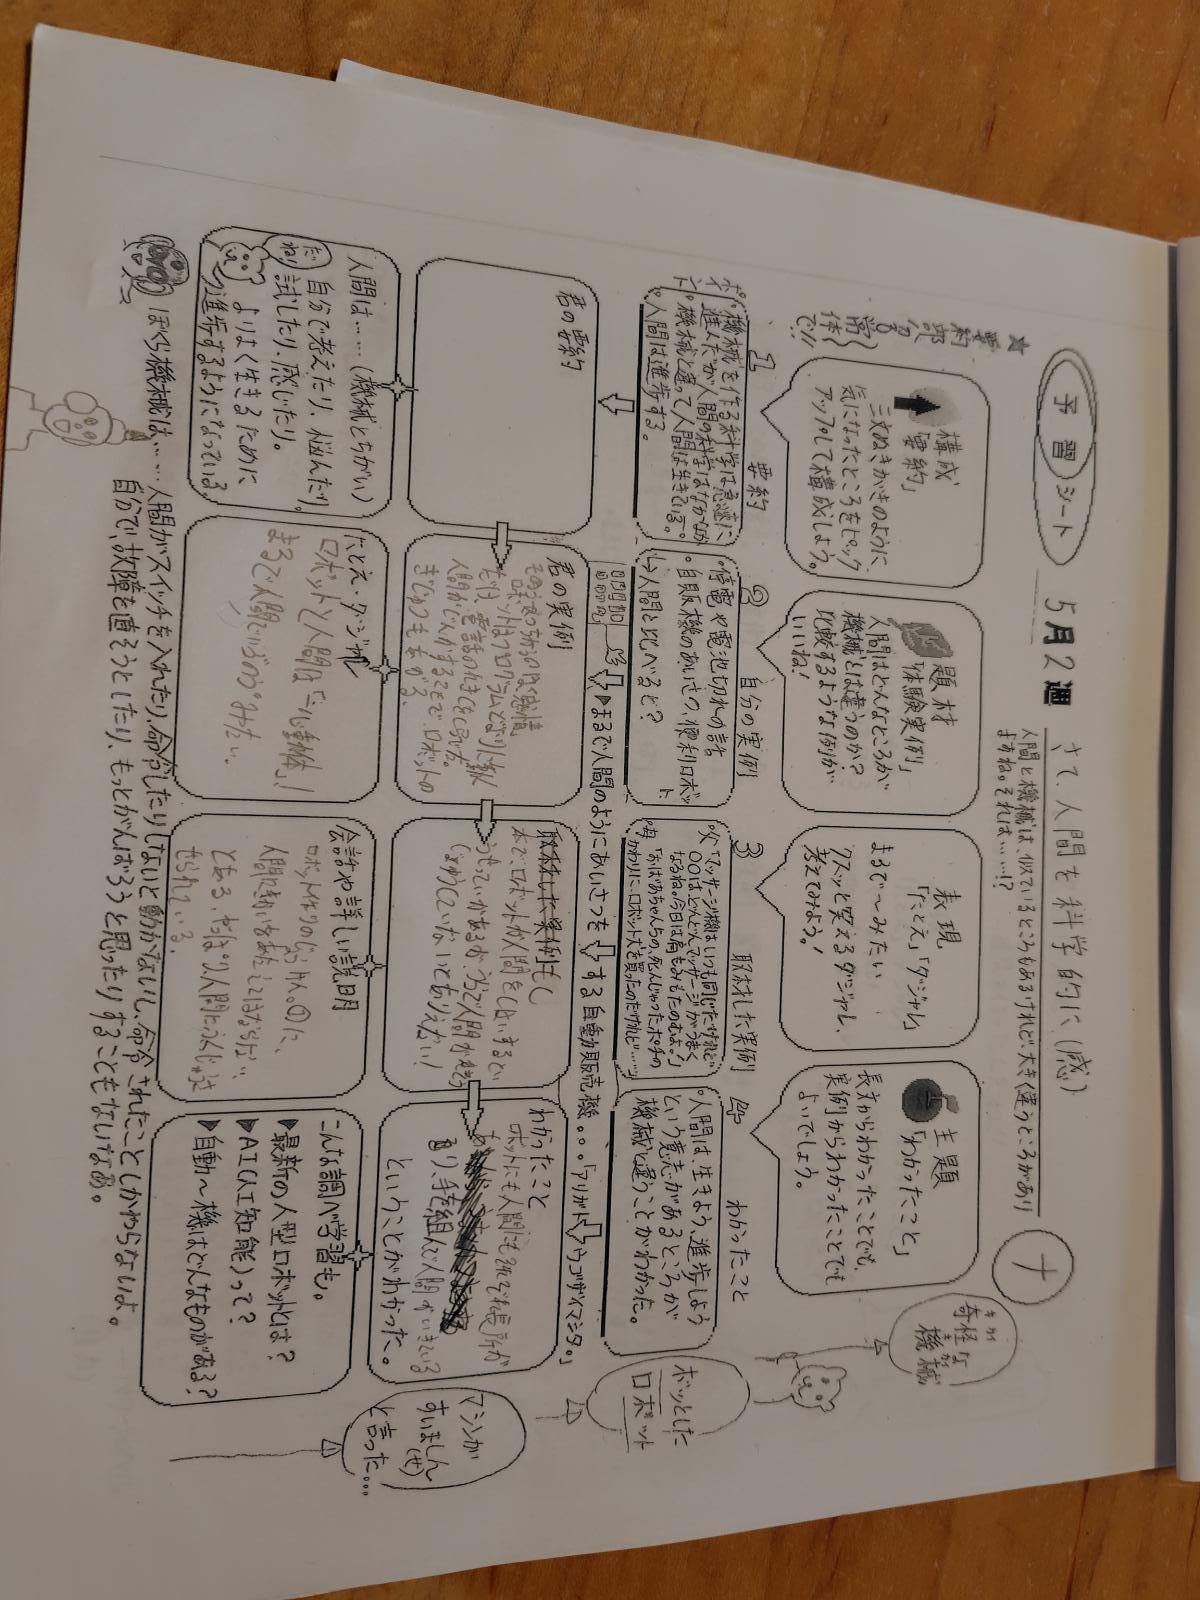 予習シート
5月2週
さて、人間を科学的に(感)
人間と機械は、似ているところもあるけれど大きく違うところがあり
ますね。それは……!?
ナ
★要約部(習)
常体
で!!
構成
「要約」
三文ぬきがきのように、
気になったところをピック
アップして構成しよう。
題材
「体験実例」
人間はどんなところが
機械とは違うのか?
比較するような例が
いいね!
表現
「たとえ」「ダジャレ」
まるで〜みたい
クスッと笑えるダジャレ、
考えてみよう!
主題
「わかったこと」
長文からわかったことでも、
実例からわかったことでも
よいでしょう。
奇怪な
機械
1
要約
ポイント
。機械を作る科学は急速に
進んだが人間の科学はなかなか
。機械と違って人間は生きている。
。人間は進歩する。
2
自分の実例
・停電や電池切れの話
・自販機のあいさつ、便利ロボット
↳人間と比べると?
3
取材した実例
父「マッサージ機はいつも同じだけれど
〇〇はどんどんマッサージがうまく
なるね。今日は肩もみもたのむよ。」
母「おばあちゃんちの、死んじゃったポチの
かわりに、ロボット犬を買ったのだけれど……」
4
わかったこと
。人間は、生きよう、進歩しよう
という意志があるところが
機械と違うことがわかった。
ボッとした
ロボット
▶まるで人間のようにあいさつをする自動販売機。。。「アリガトウゴザイマシタ。」
君の要約
君の実例
ロボットはプログラムで
取材した実例もし
本で、ロボットが人間を
わかったこと
ロボットにも人間にも
長所が
り、手を組んで人間が
ということがわかった。
マシンが
すいましん
(せ)
と言った…
人間は……(機械とちがい)
自分で考えたり、悩んだり、
試したり、感じたり。
よりよく生きるために
進歩するようになっている。
だね!
たとえ・ダジャレ
ロボットと人間は
まるで人間
みたい。
会話や詳しい説明
こんな調べ学習も。
▶最新の人型ロボットとは?
▶AI(人工知能)って?
▶自動〜機はどんなものがある?
ぼくら機械は……人間がスイッチを入れたり、命令したりしないと動かないし、命令されたことしかやらないよ。
自分で、故障を直そうとしたり、もっとがんばろうと思ったりすることもないなあ。